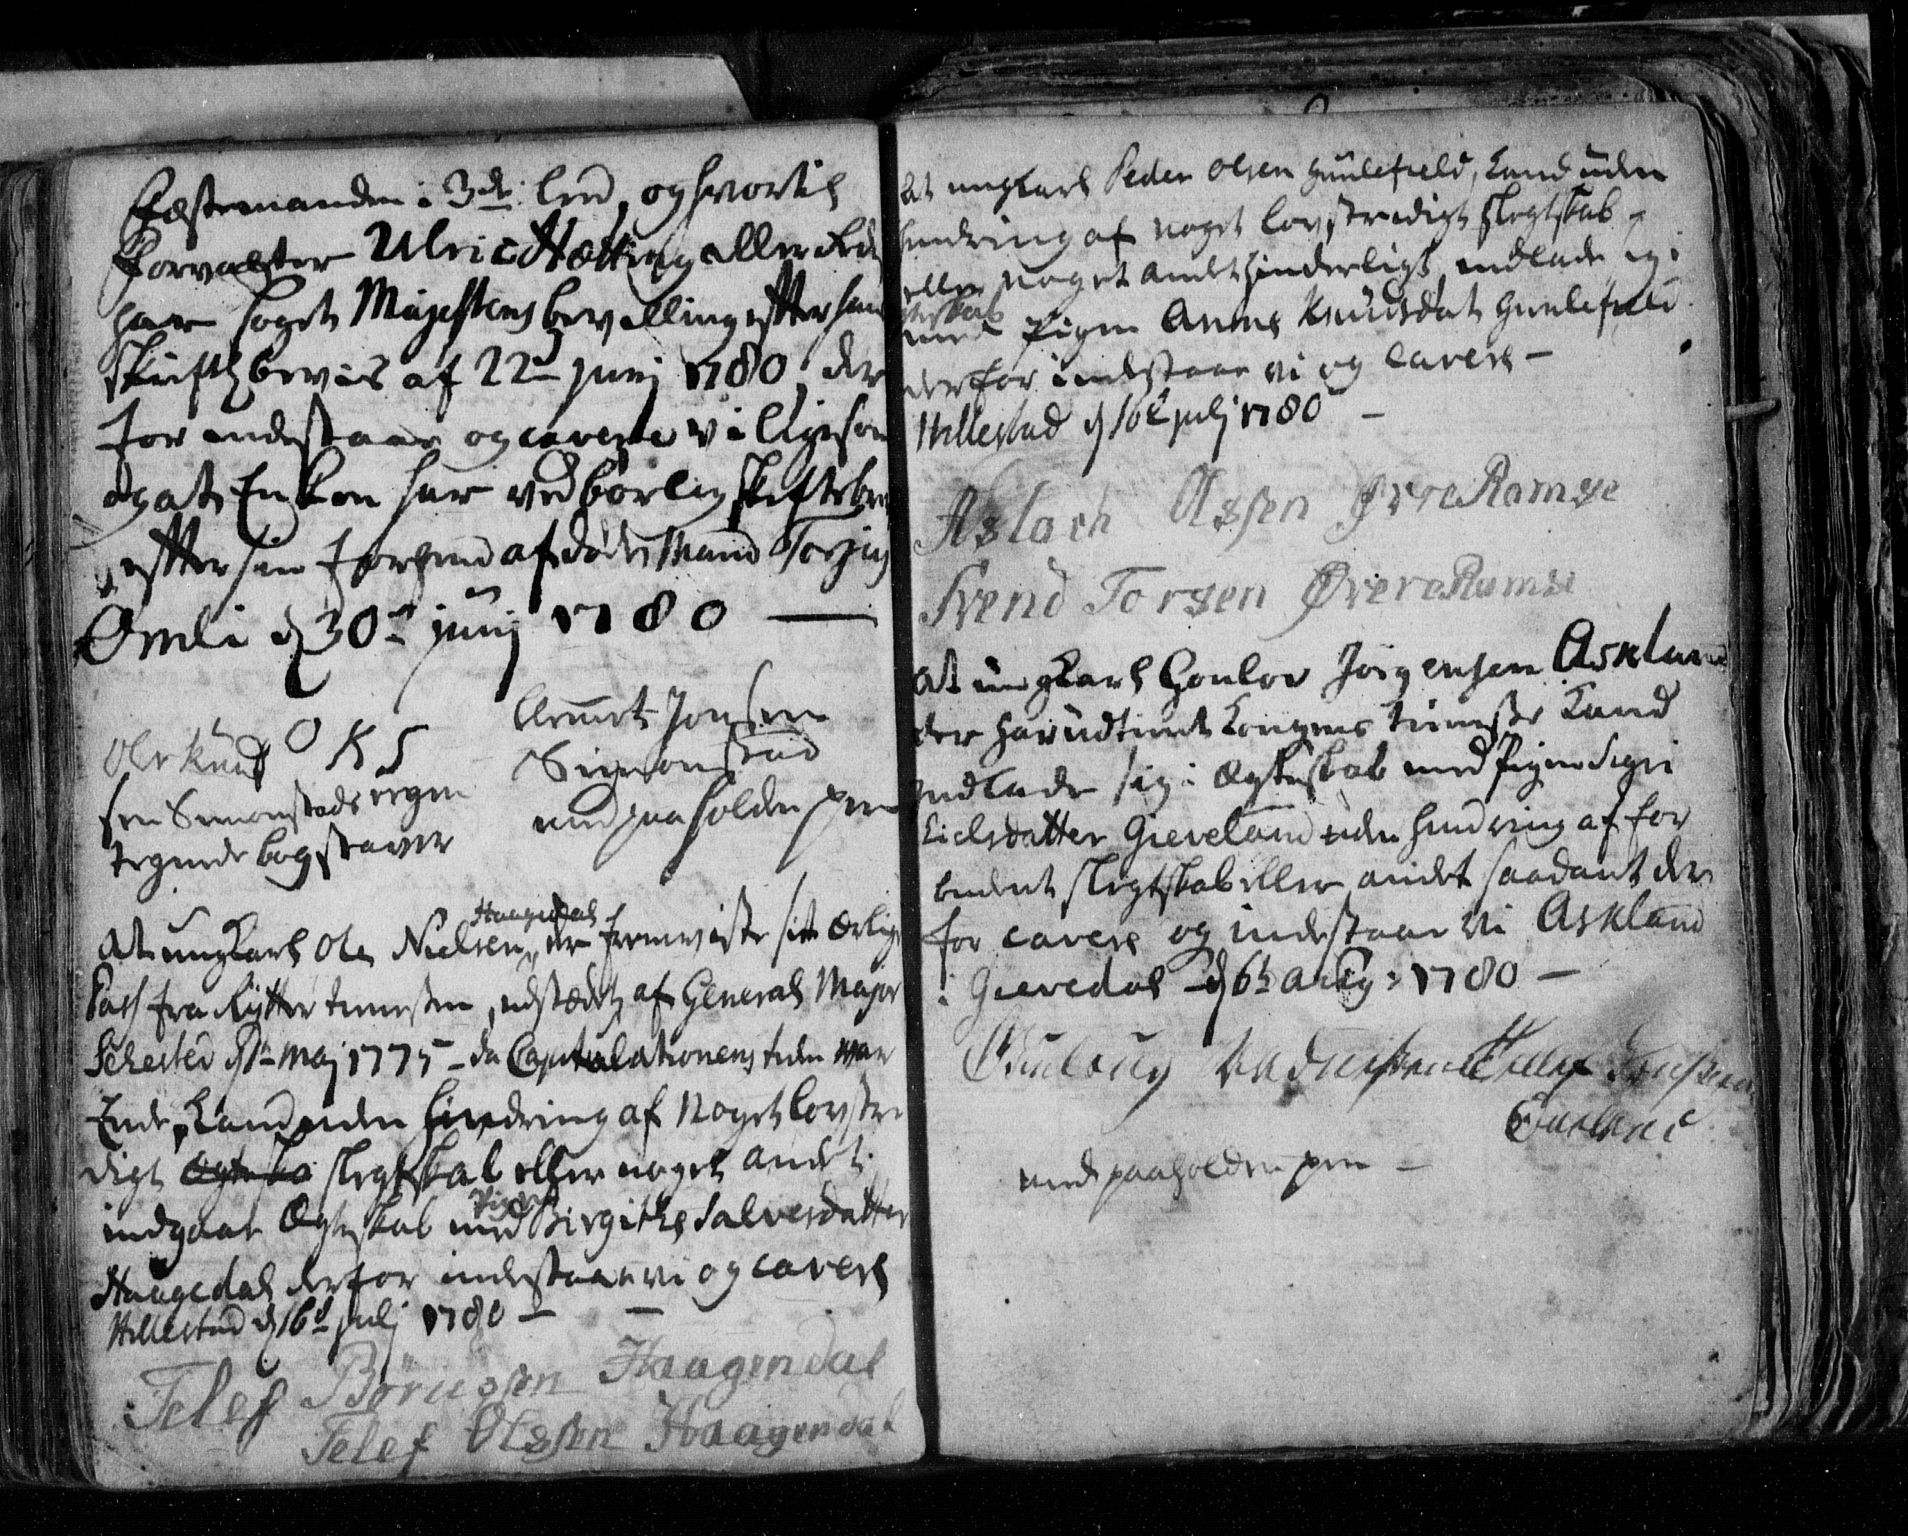 Fæstemanden i 3de: leed, og hvortil
Forvalter Ulric Hetting allerede
har søgt Majestens bevalling efter hans
skriftl bevis af 22de Junj 1780, der
for indestaar og cavere vi ligesom
og at Enken har vedbørlig skiftebrev
efter sin forhen afdøde Mand Torjus
Omli d 30te Junij 1780 —
Ole Knud O K S
sen Simonstads egen
tegnede bogstaver
Simonstad
med paaholden pen
Haagedal
At ungkarl Ole Nielsen, der fremviste sit ærlige
Pas fra Rytter tienesten, udstædet af General Major
Sehested d 1te Maj 1775 - da Capitulationens tiden var
Ende, Kand uden hindring af noget lovstri
digt slegtskab eller noget andet
Pigen
indgaae Ægteskab med Birgithe Salvesdatter
Haagedal derfor indestaar vi og caverer
Hillestad d 16de Julj 1780 —
Telef Børuesen Haagendal
Telef Olssen Haagendal
At ungkarl Peder Olsen Guulefield, Kand uden
hindring af noget lovstridigt slegtskab
eller noget andet hinderligt indlade sig i
Egteskab
med Pigen Anne Knudsdat Guulefield
derfor indestaar vi og caverer —
Hillestad d 16de Julj 1780 —
Aslach Olssen Øvre Ramse
Svend Torsen Øvere Ramse
At ungkarl Gonlov Jørgensen Askland
der har udtient Kongens tieneste Kand
indlade sig i Ægteskab med Pigen Sigri
Eielsdatter Gieveland uden hindring af for
budent slegtskab eller andet saadant der
for caverer og indestaar vi Askland
i Gievedal d 6te Aug: 1780 —
med paaholden pen —